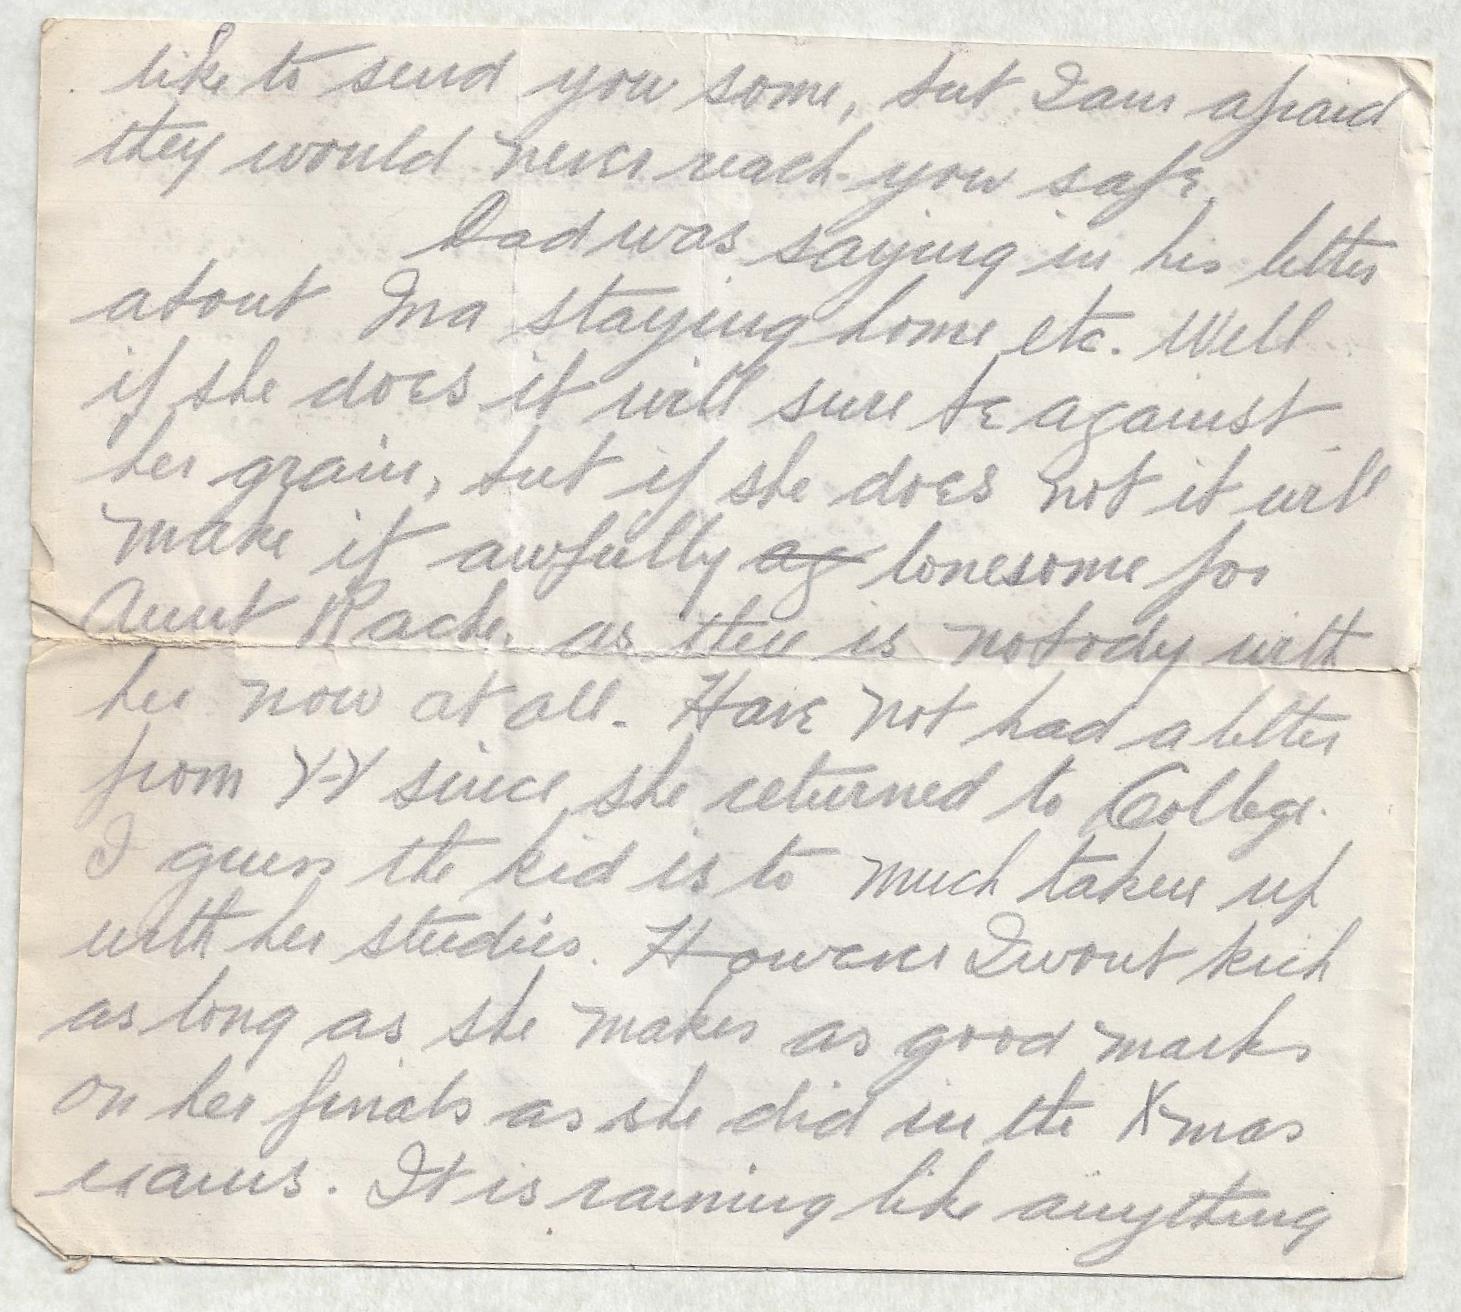 like to send you some, but I am afraid
they would never reach you safe.
Dad was saying in his letter
about Ina staying home etc. Well
if she does it will sure be against
her grain, but if she does not it will
make it awfully ag lonesome for
Aunt Rache. as there is nobody with
her now at all. Have not had a letter
from Y-Y since she returned to College.
I guess the kid is to much taken up
with her studies. However I wont kick
as long as she makes as good marks
on her finals as she did in the Xmas
exams. It is raining like anything